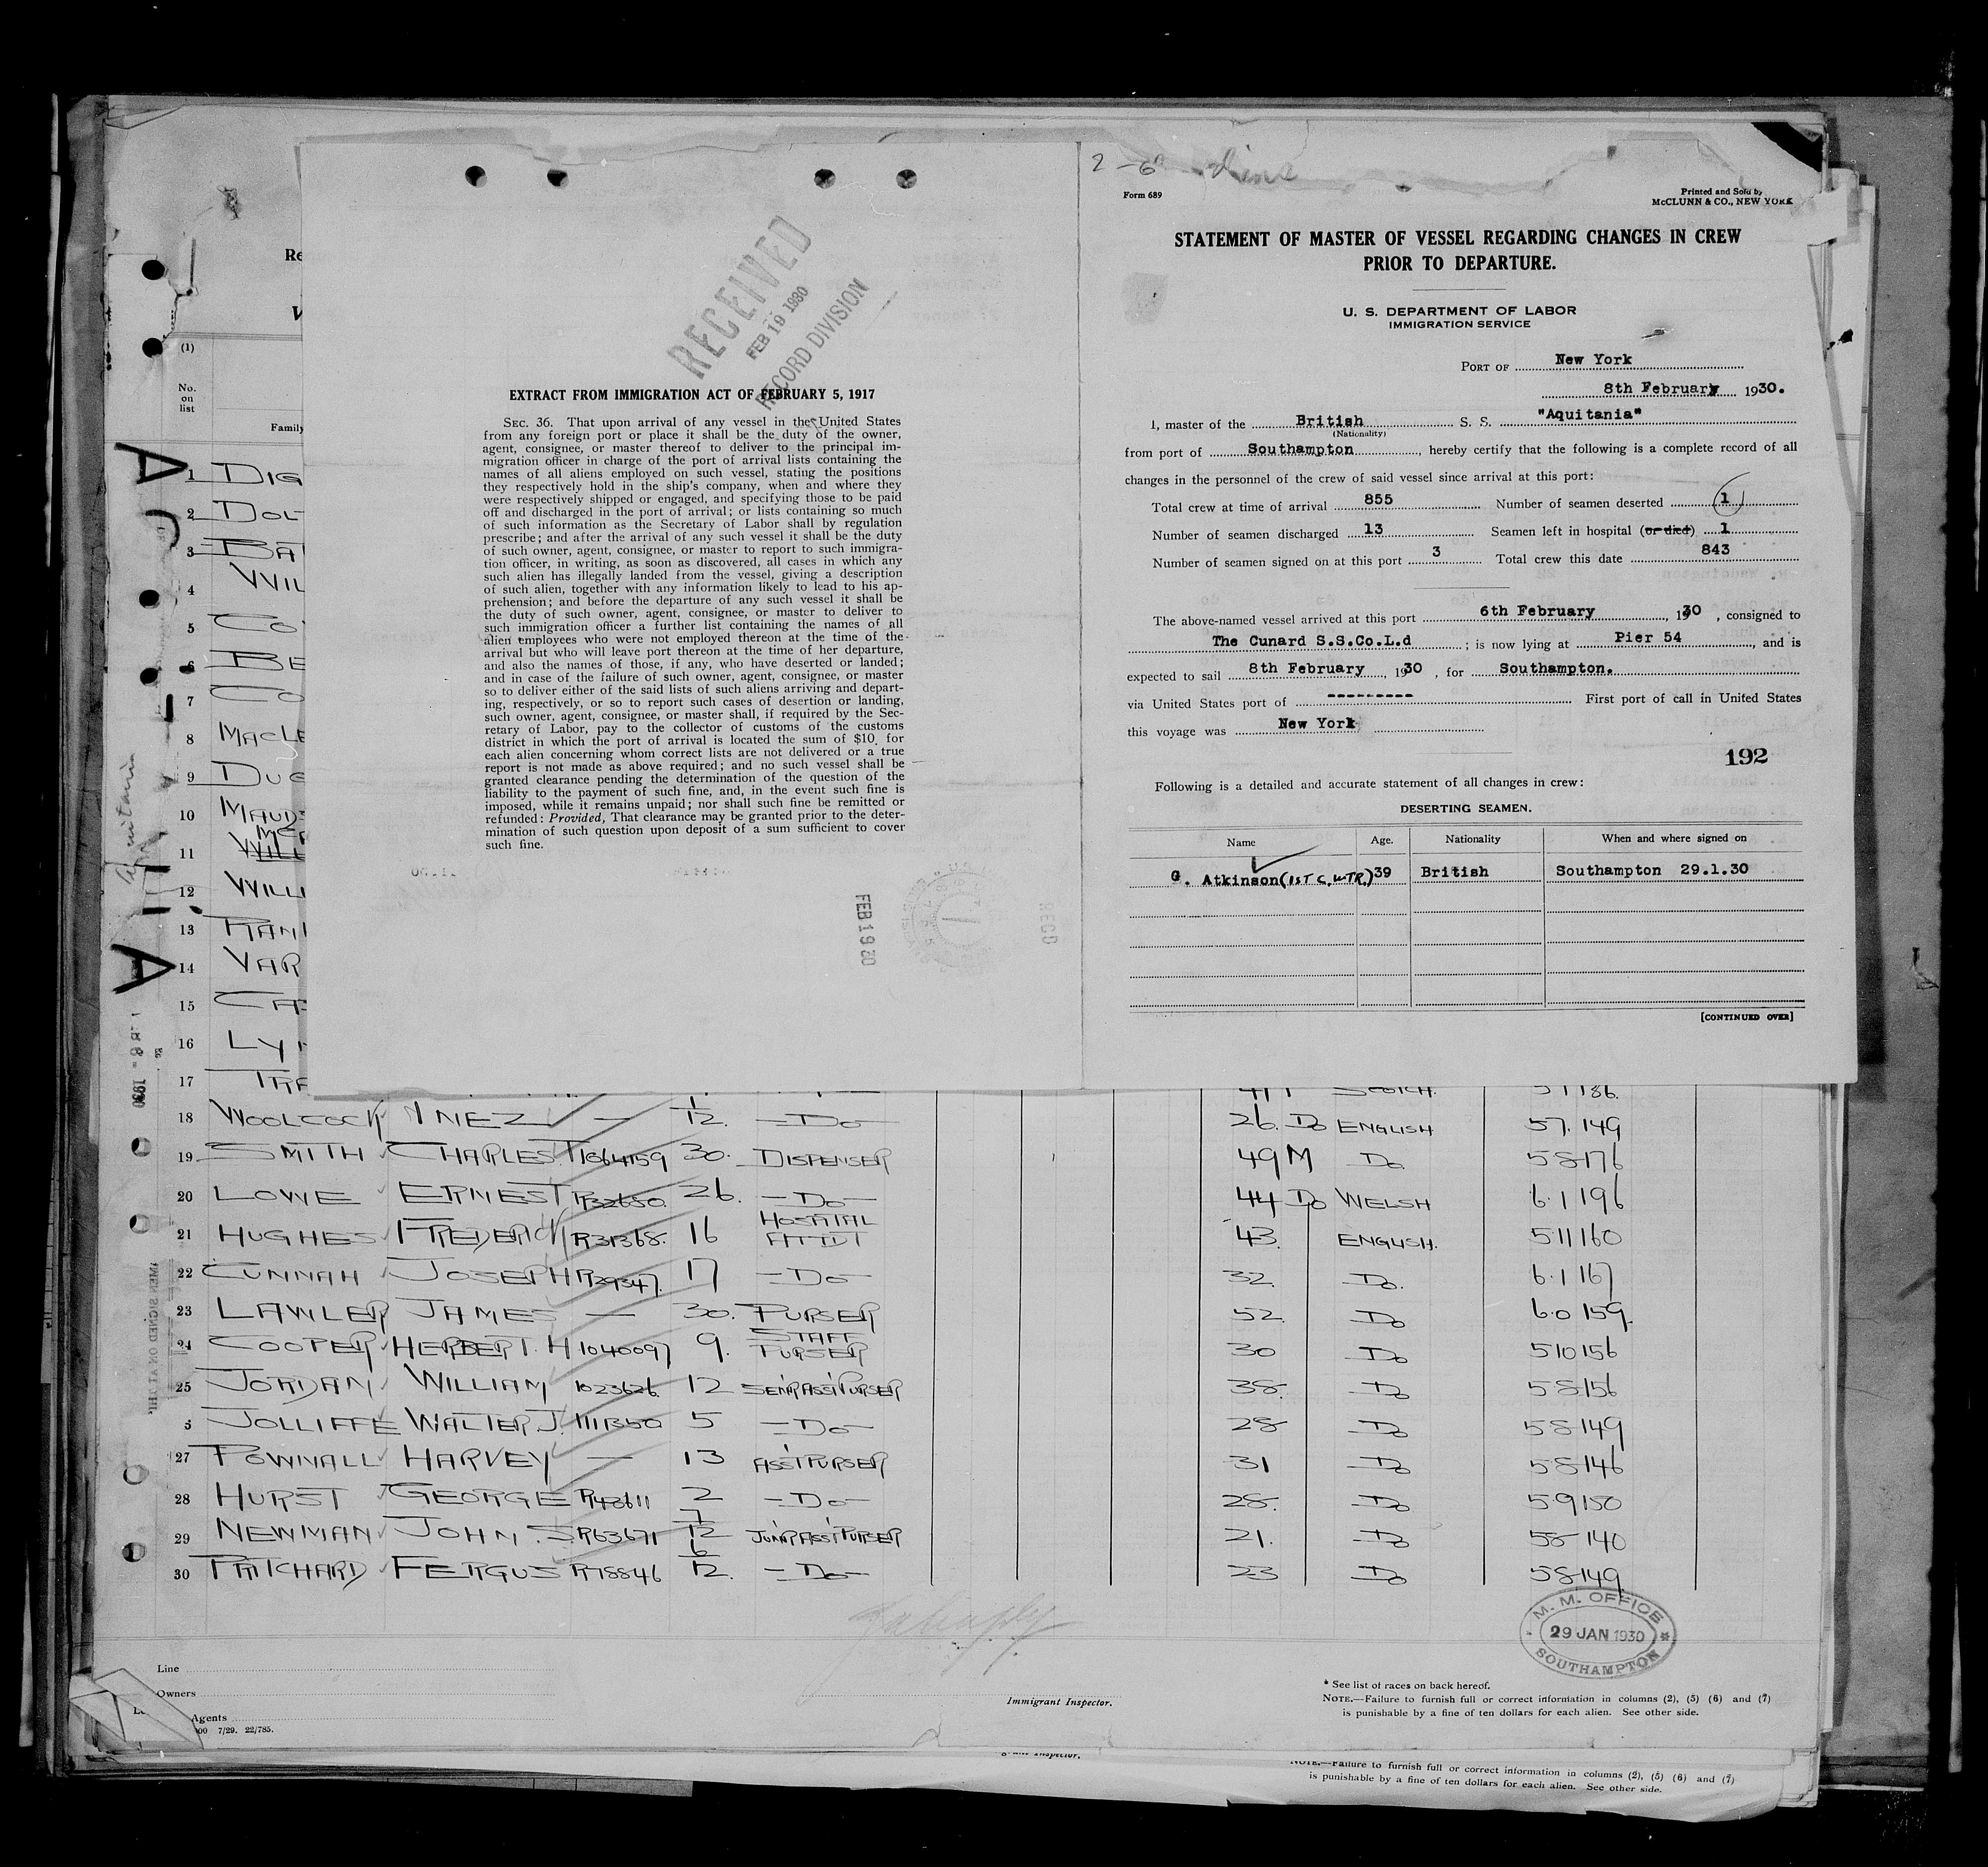 2-6
Form 689
Printed and Sold by
McCLUNN & CO., NEW YORK
STATEMENT OF MASTER OF VESSEL REGARDING CHANGES IN CREW
PRIOR TO DEPARTURE.
U. S. DEPARTMENT OF LABOR
IMMIGRATION SERVICE
PORT OF New York
8th February 1930.
I, master of the British S. S. "Aquitania"
(Nationality)
from port of Southampton, hereby certify that the following is a complete record of all
changes in the personnel of the crew of said vessel since arrival at this port:
Total crew at time of arrival 855 Number of seamen deserted 1
Number of seamen discharged 13 Seamen left in hospital (or died) 1
Number of seamen signed on at this port 3 Total crew this date 843
The above-named vessel arrived at this port 6th February, 1930, consigned to
The Cunard S.S.Co.L.d; is now lying at Pier 54, and is
expected to sail 8th February, 1930, for Southampton.
via United States port of --------- First port of call in United States
this voyage was New York
192
Following is a detailed and accurate statement of all changes in crew:
DESERTING SEAMEN.
Name Age. Nationality When and where signed on
G. Atkinson (1ST C. WTR.) 39 British Southampton 29.1.30
[CONTINUED OVER]
RECEIVED
FEB 19 1930
RECORD DIVISION
EXTRACT FROM IMMIGRATION ACT OF FEBRUARY 5, 1917
SEC. 36. That upon arrival of any vessel in the United States
from any foreign port or place it shall be the duty of the owner,
agent, consignee, or master thereof to deliver to the principal im-
migration officer in charge of the port of arrival lists containing the
names of all aliens employed on such vessel, stating the positions
they respectively hold in the ship's company, when and where they
were respectively shipped or engaged, and specifying those to be paid
off and discharged in the port of arrival; or lists containing so much
of such information as the Secretary of Labor shall by regulation
prescribe; and after the arrival of any such vessel it shall be the duty
of such owner, agent, consignee, or master to report to such immigra-
tion officer, in writing, as soon as discovered, all cases in which any
such alien has illegally landed from the vessel, giving a description
of such alien, together with any information likely to lead to his ap-
prehension; and before the departure of any such vessel it shall be
the duty of such owner, agent, consignee, or master to deliver to
such immigration officer a further list containing the names of all
alien employees who were not employed thereon at the time of the
arrival but who will leave port thereon at the time of her departure,
and also the names of those, if any, who have deserted or landed;
and in case of the failure of such owner, agent, consignee, or master
so to deliver either of the said lists of such aliens arriving and depart-
ing, respectively, or so to report such cases of desertion or landing,
such owner, agent, consignee, or master shall, if required by the Sec-
retary of Labor, pay to the collector of customs of the customs
district in which the port of arrival is located the sum of $10 for
each alien concerning whom correct lists are not delivered or a true
report is not made as above required; and no such vessel shall be
granted clearance pending the determination of the question of the
liability to the payment of such fine, and, in the event such fine is
imposed, while it remains unpaid; nor shall such fine be remitted or
refunded: Provided, That clearance may be granted prior to the deter-
mination of such question upon deposit of a sum sufficient to cover
such fine.
FEB 19 30
RECD
Aquitania
(1)
No.
on
list
Family
1 DIG
2 DOL
3 BA
4 WIL
5 CO
6 BE
7 CO
8 MACLE
9 DUG
10 MAUD
11 WILL
12 WILLI
13 RAN
14 VAR
15 CA
16 LY
17 TRA
18 WOOLCOCK INEZ — 1/12. —DO— 26. DO ENGLISH 57. 149
19 SMITH CHARLES.T 1064159 30. DISPENSER 49 M DO. 58 176
20 LOWE ERNEST R32650. 26. —DO— 44 DO WELSH 6.1 196
21 HUGHES FREDERICK R31368. 16 HOSPITAL ATTDT 43. ENGLISH. 511 160
22 CUNNAH JOSEPH R29347. 17 —DO— 32. DO. 6.1 167
23 LAWLER JAMES — 30. PURSER 52. DO 6.0 159
24 COOPER HERBERT. H 1040097 9. STAFF PURSER 30 DO 510 156
25 JORDAN WILLIAM 1023626 12 SENR ASST PURSER 38. DO 58 156
JOLLIFFE WALTER J. 1111350 5 —DO— 28 DO 58 149
27 POWNALL HARVEY — 13 ASST PURSER 31 DO 58 146
28 HURST GEORGE R43611 2 —DO— 28. DO 59 150
29 NEWMAN JOHN. S. R63671 7/12 JUNR ASST PURSER 21. DO 58 140
30 PRITCHARD FERGUS R78846 6/12. —DO— 23 DO 58 149
M. M. OFFICE
29 JAN 1930
SOUTHAMPTON
Line
Owners
Agents
Immigrant Inspector.
* See list of races on back hereof.
NOTE.—Failure to furnish full or correct information in columns (2), (5) (6) and (7)
is punishable by a fine of ten dollars for each alien. See other side.
7/29. 22/785.
NOTE.—Failure to furnish full or correct information in columns (2), (5) (6) and (7)
is punishable by a fine of ten dollars for each alien. See other side.